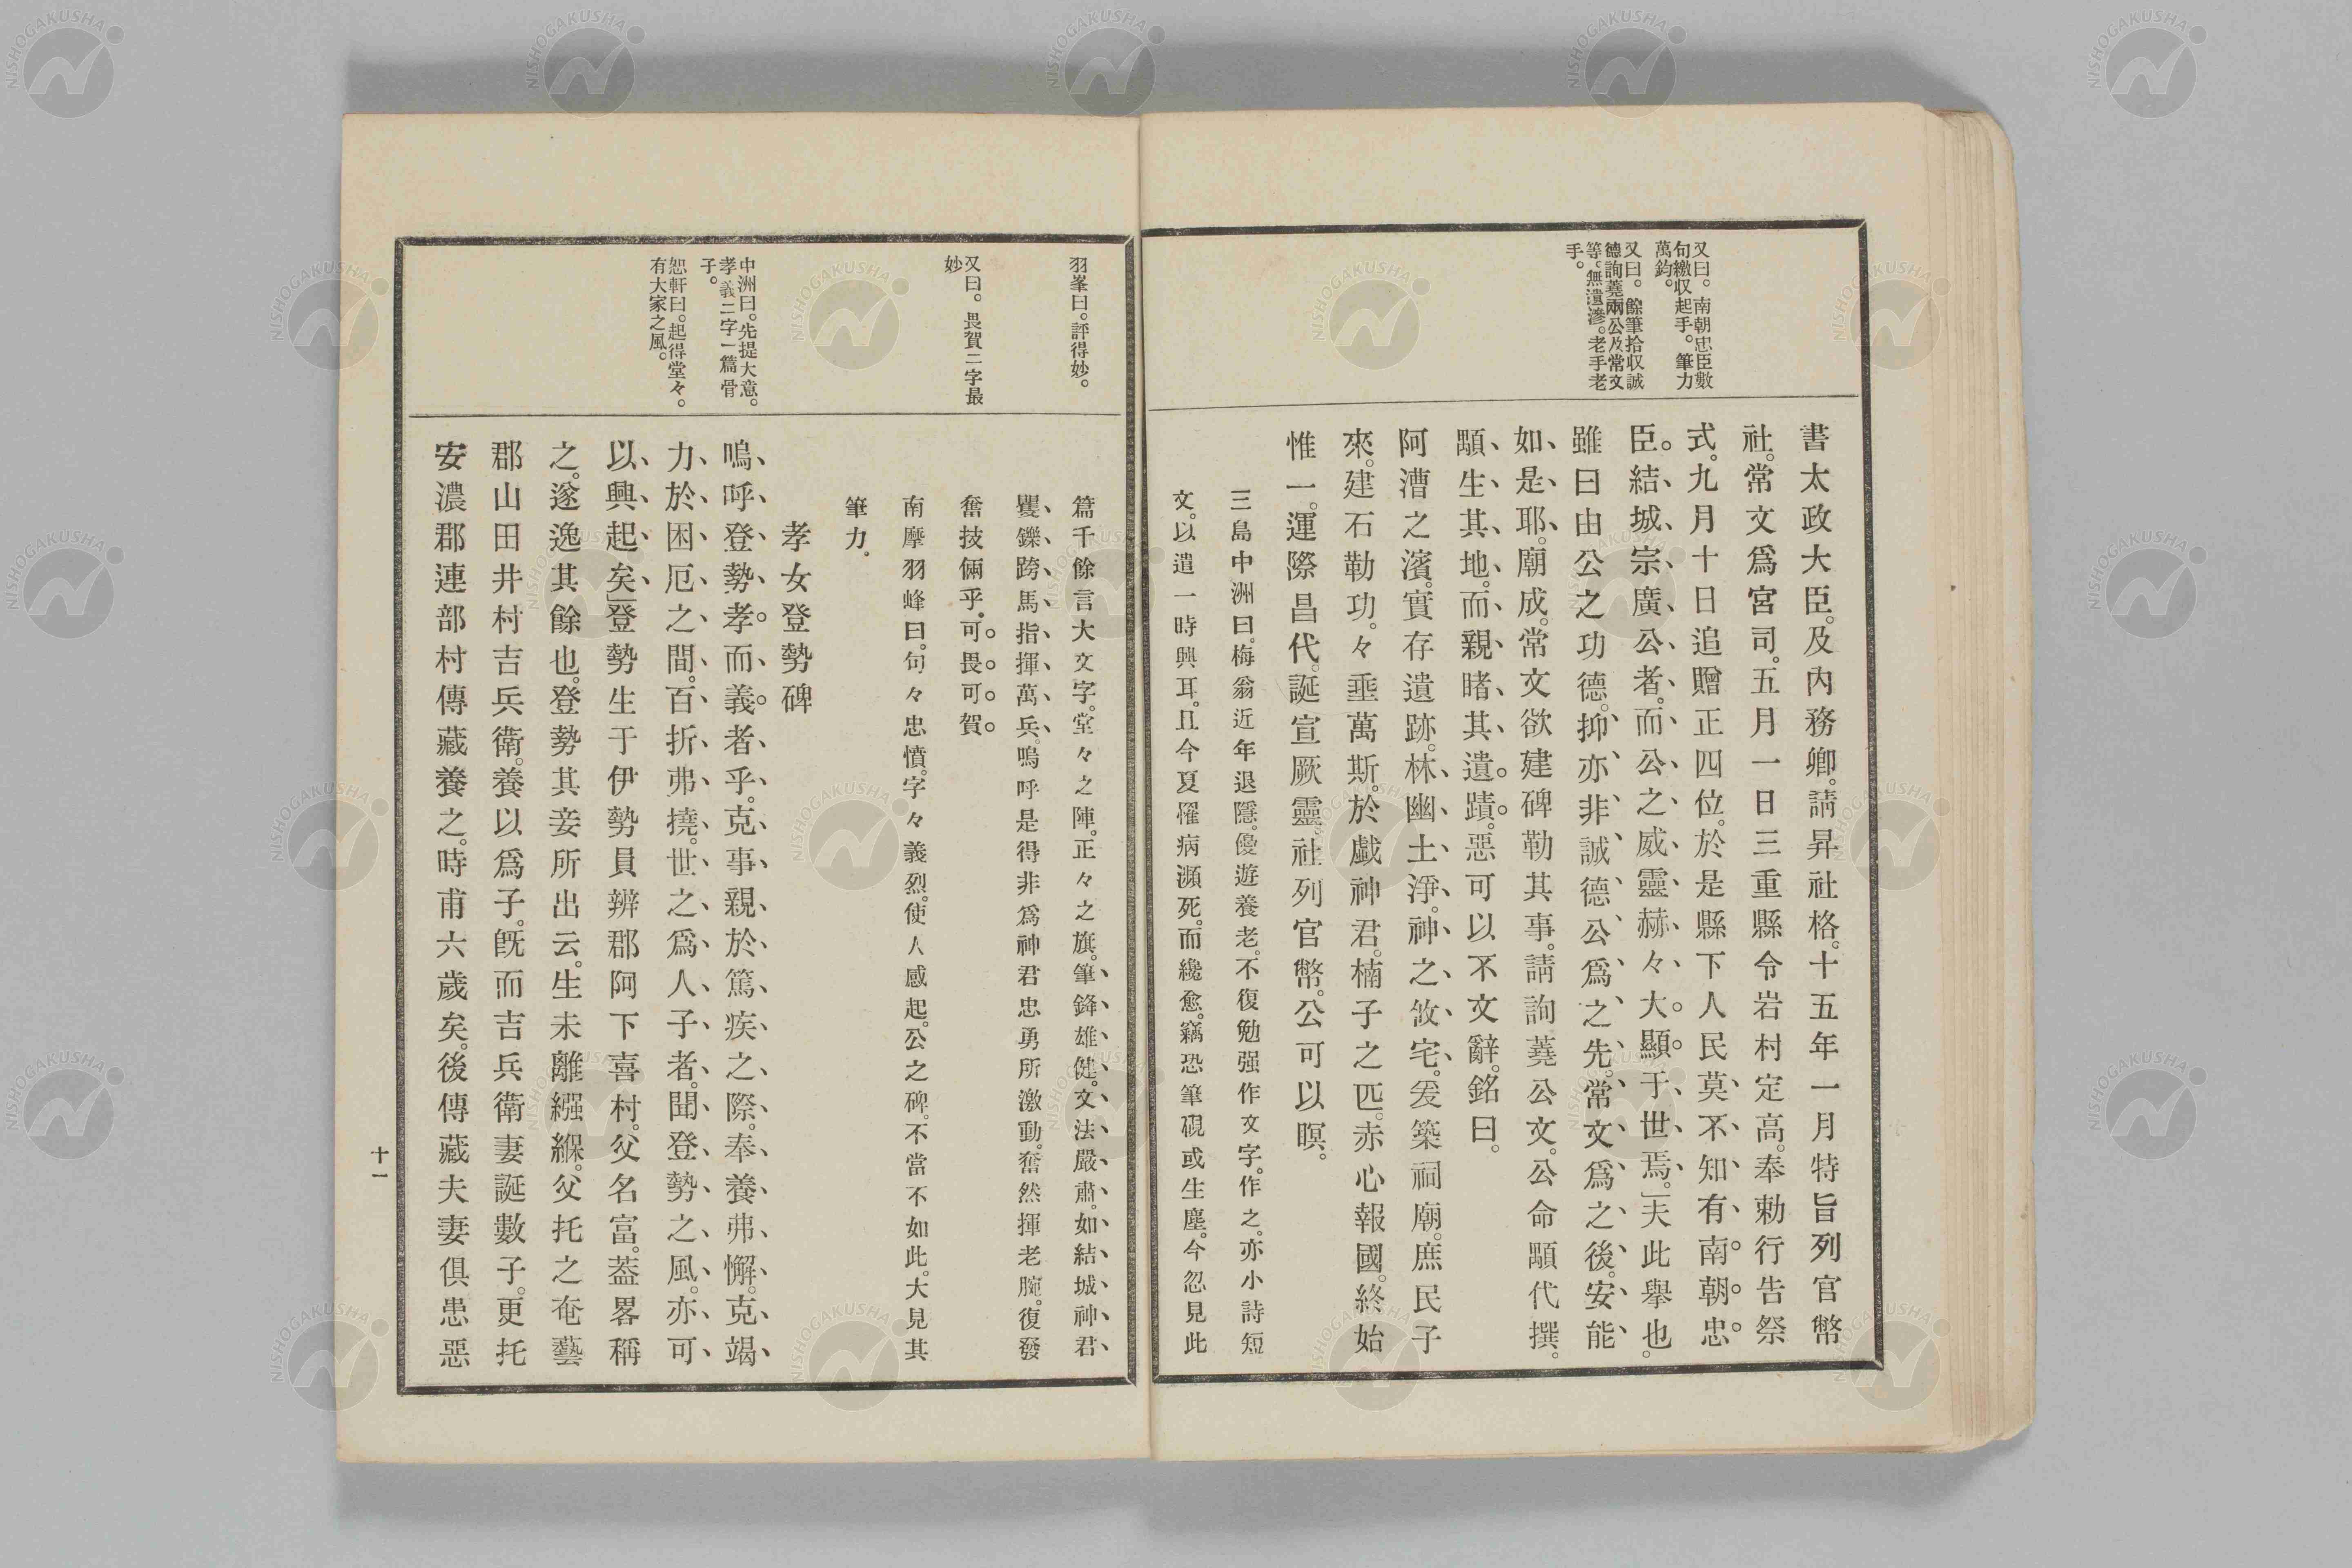 又曰。南朝忠臣數
句繳収起手。筆力
萬鈞。
又曰。餘筆拾収誠
德詢蕘兩公及常文
等。無遺滲。老手老
手。
書太政大臣。及內務卿。請昇社格。十五年一月特旨列官幣
社。常文爲宮司。五月一日三重縣令岩村定高。奉勅行告祭
式。九月十日追贈正四位。於是縣下人民莫不知有南朝忠
臣。結城宗廣公者。而公之威靈赫々大顯于世焉。」夫此擧也。
雖曰由公之功德。抑亦非誠德公爲之先。常文爲之後。安能
如是耶。廟成。常文欲建碑勒其事。請詢蕘公文。公命顒代撰。
顒生其地。而親睹其遺蹟。惡可以不文辭。銘曰。
阿漕之濱。實存遺跡。林幽土淨。神之攸宅。爰築祠廟。庶民子
來。建石勒功。々垂萬斯。於戱神君。楠子之匹。赤心報國。終始
惟一。運際昌代。誕宣厥靈。社列官幣。公可以瞑。
三島中洲曰。梅翁近年退隱。優遊養老。不復勉强作文字。作之。亦小詩短
文。以遣一時興耳。且今夏罹病瀕死。而纔愈。竊恐筆硯或生塵。今忽見此
羽峯曰。評得妙。
又曰。畏賀二字最
妙
中洲曰。先提大意。
孝義二字一篇骨
子。
恕軒曰。起得堂々。
有大家之風。
篇千餘言大文字。堂々之陣。正々之旗。筆鋒雄健。文法嚴肅。如結城神君
矍鑠跨馬指揮萬兵。嗚呼是得非爲神君忠勇所激動。奮然揮老腕。復發
奮技倆乎。可畏可賀。
南摩羽峰曰。句々忠憤。字々義烈。使人感起。公之碑。不當不如此。大見其
筆力。
孝女登勢碑
嗚呼登勢孝而義者乎。克事親於篤疾之際。奉養弗懈。克竭
力於困厄之間。百折弗撓。世之爲人子者。聞登勢之風。亦可
以興起矣。」登勢生于伊勢員辨郡阿下喜村。父名富。葢畧稱
之。遂逸其餘也。登勢其妾所出云。生未離繈緥。父托之奄藝
郡山田井村吉兵衛。養以爲子。旣而吉兵衛妻誕數子。更托
安濃郡連部村傳藏養之。時甫六歲矣。後傳藏夫妻俱患惡
十一